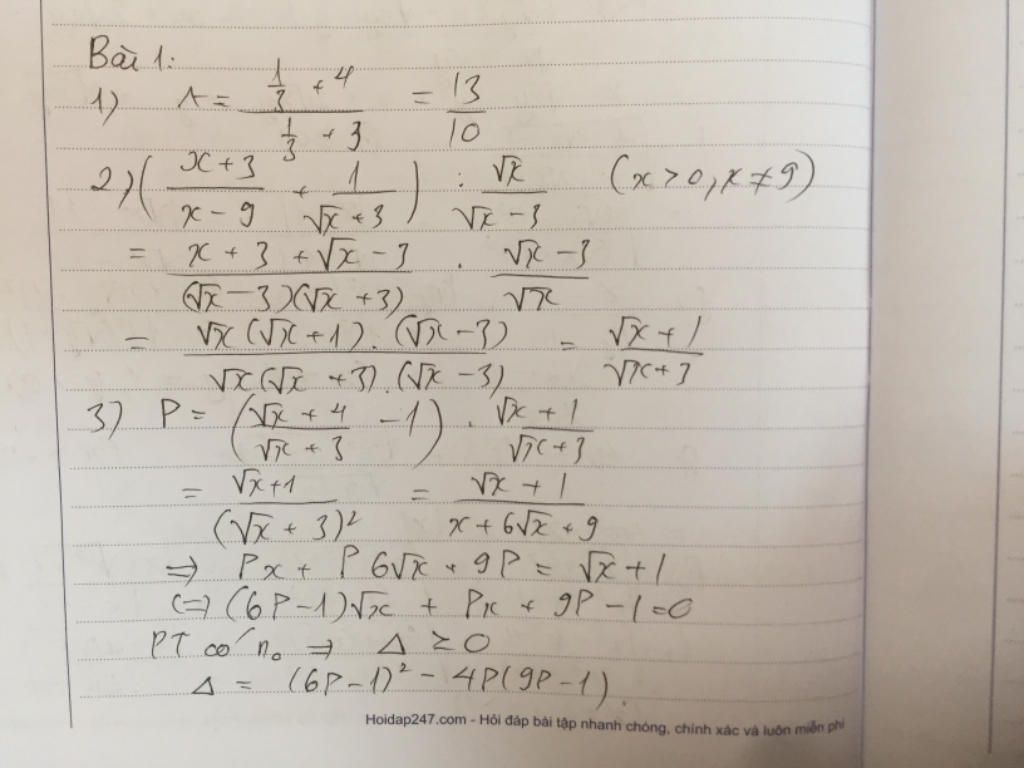 Bài 1:
1) A = (1/3 + 4)/(1/3 + 3) = 13/10
2) ((x + 3)/(x - 9) + 1/(√x + 3)) : √x/(√x - 3) (x > 0, x ≠ 9)
= (x + 3 + √x - 3)/((√x - 3)(√x + 3)) . (√x - 3)/√x
= (√x (√x + 1) . (√x - 3))/(√x (√x + 3) . (√x - 3)) = (√x + 1)/(√x + 3)
3) P = ((√x + 4)/(√x + 3) - 1) . (√x + 1)/(√x + 3)
= (√x + 1)/(√x + 3)² = (√x + 1)/(x + 6√x + 9)
⇒ Px + P 6√x + 9P = √x + 1
⇔ (6P - 1)√x + Px + 9P - 1 = 0
PT có n₀ ⇒ Δ ≥ 0
Δ = (6P - 1)² - 4P(9P - 1).
Hoidap247.com - Hỏi đáp bài tập nhanh chóng, chính xác và luôn miễn phí